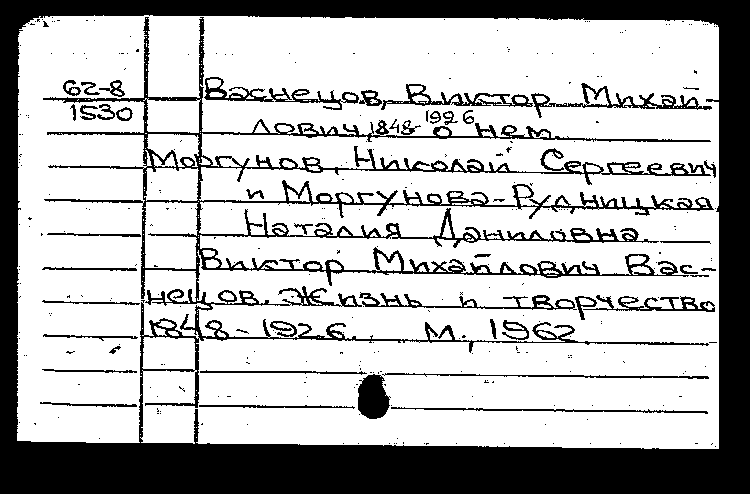 62-8
1530
Васнецов, Виктор Михай-
лович, 1848-1926 о нем.
Моргунов, Николай Сергеевич
и Моргунова-Рудницкая,
Наталия Даниловна.
Виктор Михайлович Вас-
нецов. Жизнь и творчество
1848-1926. М., 1962.